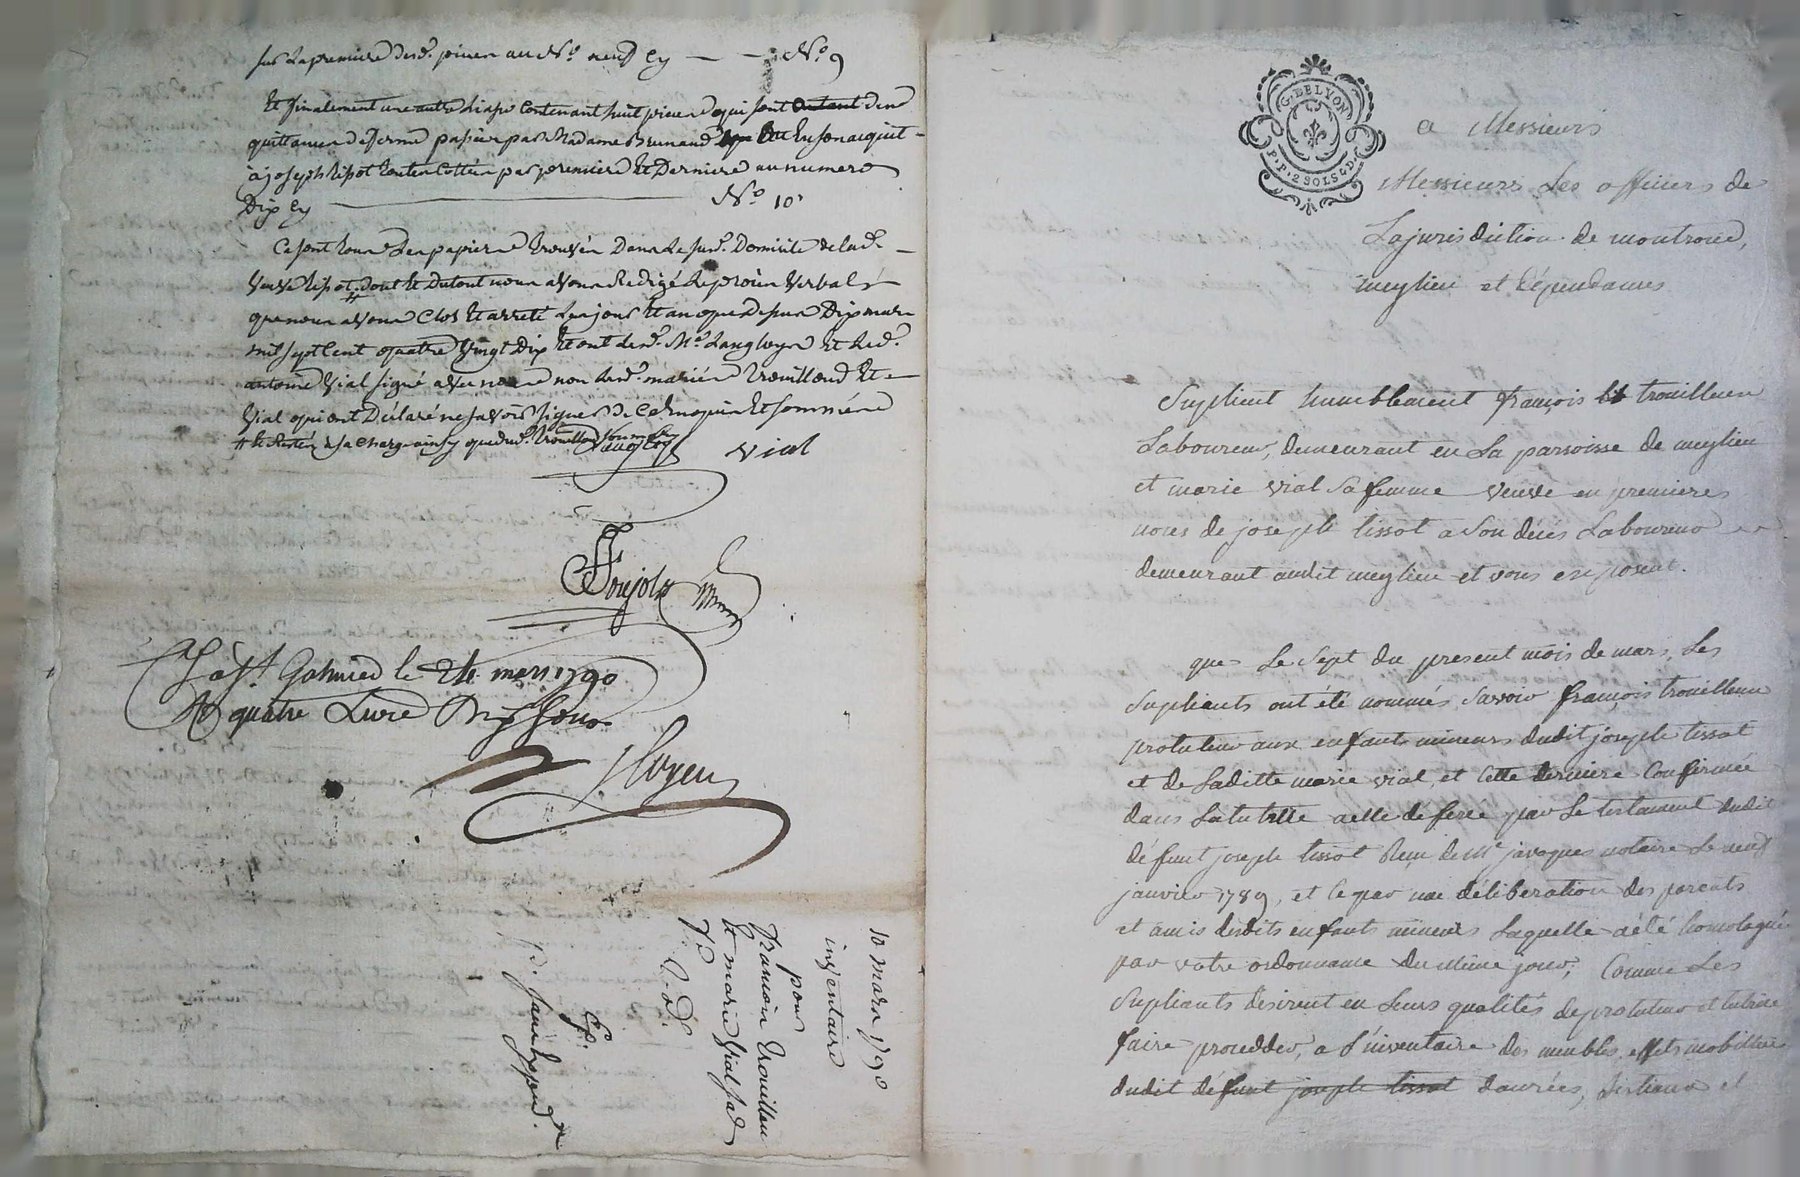 sur la premiere desd. pieces au No. neuf Cy — — No. 9
Et finalement une autre liasse Contenant huit pieces qui sont autant des
quittances de ferme passées par Madame Brunand en son acquit
à joseph tissot toutes Cottées par premiere Et Derniere au numero
Dix Cy — No. 10
Ce sont tous Les papiers trouvés Dans Le susd. Domicile de lad.
Veuve tissot, dont Et Dutout nous avons Redigé Le procès Verbal
que nous avons Clos Et arreté Les jour Et an que dessus Dix mars
mil sept Cent quatre Vingt Dix Et ont lesd. Me. Langloys Et led.
antoine Vial signé avec nous non lesd. mariés trouilleud Et
Vial qui ont Déclaré ne savoir signer de Ce Enquis Et sommés
Langloys
Vial
Soujols
à St. Galmier le 24 mars 1790
R quatre Livre Dix sous
10 mars 1790
inventaire
pour
francois trouilleu
Et marie Vial sa f
G. DE LYON
P. P. 2 SOLS 4 D.
a Messieurs
Messieurs Les officiers de
La jurisdiction de montrond,
meylieu et dépendances
Suplient humblement françois trouilleux
Laboureur, demeurant en La parroisse de meylieu
et marie vial sa femme veuve en premieres
noces de joseph tissot a son décés Laboureur
demeurant audit meylieu et vous exposent.
que Le sept du present mois de mars, Les
Supliants ont été nommés, savoir françois trouilleux
protuteur aux enfants mineurs dudit joseph tissot
et de Laditte marie vial, et cette derniere Confirmée
dans La tutelle a elle déferée par Le testament dudit
défunt joseph tissot Reçu de Me javogues notaire Le neuf
janvier 1789, et ce par une déliberation des parents
et amis desdits enfants mineurs Laquelle a été homologuée
par votre ordonnance du même jour, Comme Les
Supliants désirent en Leurs qualités de protuteur et tutrice
faire procedder, a L'inventaire des meubles, effets mobilliers
dudit défunt joseph tissot danrées, bestiaux et